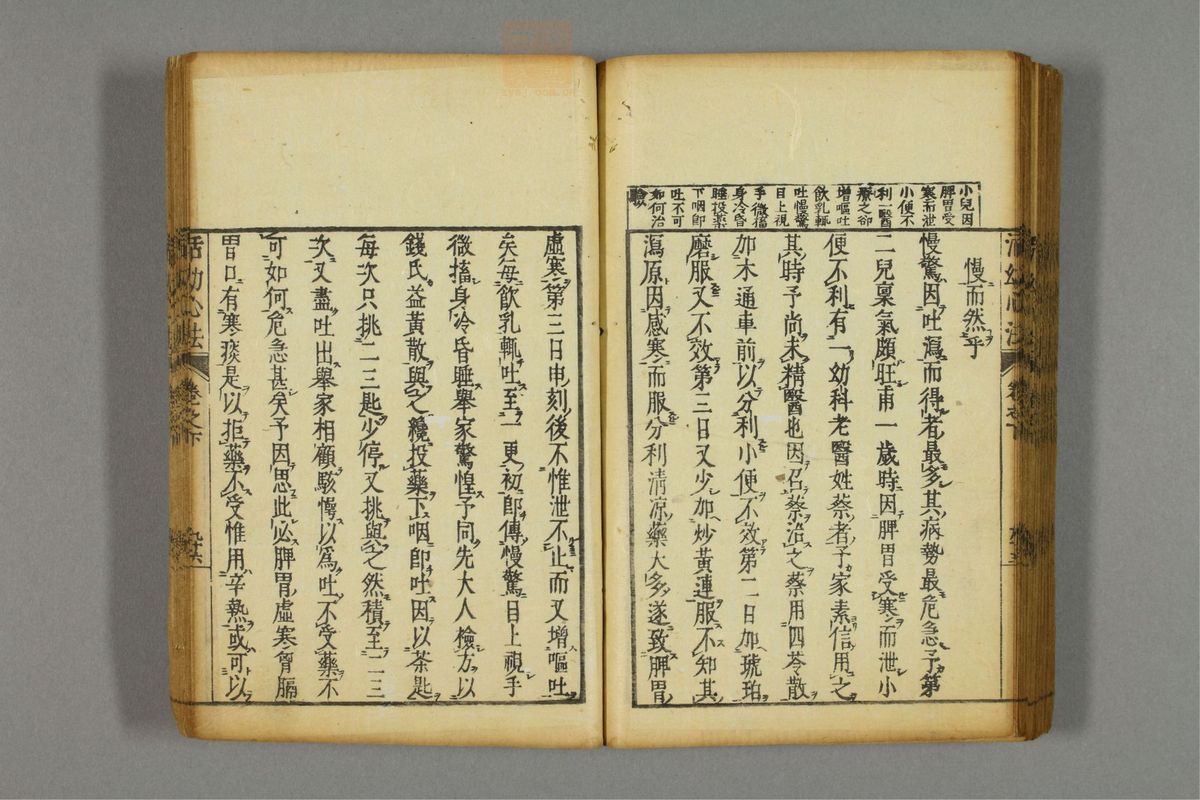 小兒因
脾胃受
寒而泄
小便不
利一醫
療之却
增嘔吐
飲乳輒
吐慢驚
目上視
手微搐
身冷昏
睡投藥
下咽即
吐不可
如何治
驗
慢而然乎
慢驚因吐瀉而得者最多其病勢最危急予第
二兒稟氣頗旺甫一歲時因脾胃受寒而泄小
便不利有一幼科老醫姓蔡者予家素信用之
其時予尚未精醫也因召蔡治之蔡用四苓散
加木通車前以分利小便不效第二日加琥珀
磨服又不效第三日又少加炒黃連服不知其
瀉原因感寒而服分利清凉藥太多遂致脾胃
虛寒第三日申刻後不惟泄不止而又增嘔吐
矣每飲乳輒吐至一更初即傳慢驚目上視手
微搐身冷昏睡舉家驚惶予同先大人檢方以
錢氏益黃散與之纔投藥下咽即吐因以茶匙
每次只挑二三匙少停又挑與之然積至二三
次又盡吐出舉家相顧駭愕以爲吐不受藥不
可如何危急甚矣予因思此必脾胃虛寒胷膈
胃口有寒痰是以拒藥不受惟用辛熱或可以
活幼心法
卷之下
九十六